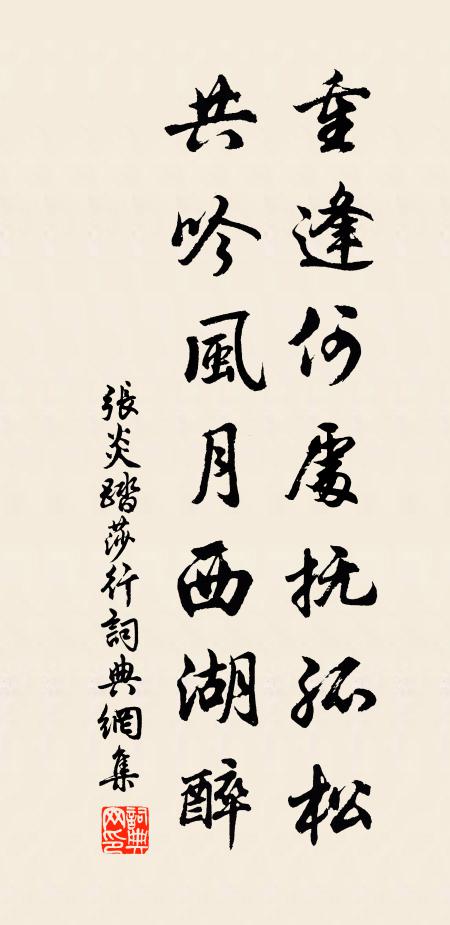 重逢何處抚孤松
共吟風月西湖醉
張炎踏莎行詞典網集
詞典網印